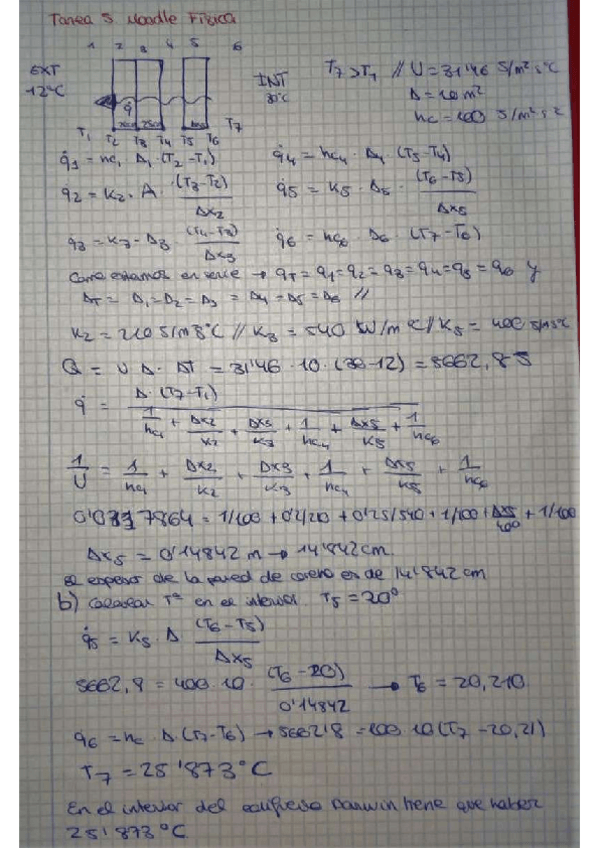 Tarea 3 Moodle Física
1 2 3 4 5 6
EXT
12ºC
INT
30ºC
T7 > T1 // U = 31'46 J/m² s ºC
A = 10 m²
hc = 100 J/m² s ºC
q̇
T1 T2 T3 T4 T5 T6 T7
q̇1 = hc1 · A1 · (T2 - T1)
q̇4 = hc4 · A4 · (T5 - T4)
q̇2 = K2 · A · (T3 - T2) / Δx2
q̇5 = K5 · A5 · (T6 - T5) / Δx5
q̇3 = K3 · A3 (T4 - T3) / Δx3
q̇6 = hc6 · A6 · (T7 - T6)
Como estamos en serie → qT = q1 = q2 = q3 = q4 = q5 = q6 y
AT = A1 = A2 = A3 = A4 = A5 = A6 //
K2 = 210 J/m s ºC // K3 = 540 J/m ºC // K5 = 400 J/m s ºC
Q = U · A · ΔT = 31'46 · 10 · (30 - 12) = 5662,8 J
q̇ = A · (T7 - T1) / (1/hc1 + Δx2/K2 + Δx3/K3 + 1/hc4 + Δx5/K5 + 1/hc6)
1/U = 1/hc1 + Δx2/K2 + Δx3/K3 + 1/hc4 + Δx5/K5 + 1/hc6
0'0317864 = 1/100 + 0'2/210 + 0'25/540 + 1/100 + Δx5/400 + 1/100
Δx5 = 0'14842 m → 14'842 cm.
El espesor de la pared de es de 14'842 cm
b) Calcular Tª en el interior T5 = 20º
q̇5 = K5 · A (T6 - T5) / Δx5
5662,8 = 400 · 10 · (T6 - 20) / 0'14842 → T6 = 20,210.
q6 = hc · A · (T7 - T6) → 5662'8 = 100 · 10 (T7 - 20,21)
T7 = 25'873 ºC
En el interior del edificio Darwin tiene que haber
25'873 ºC